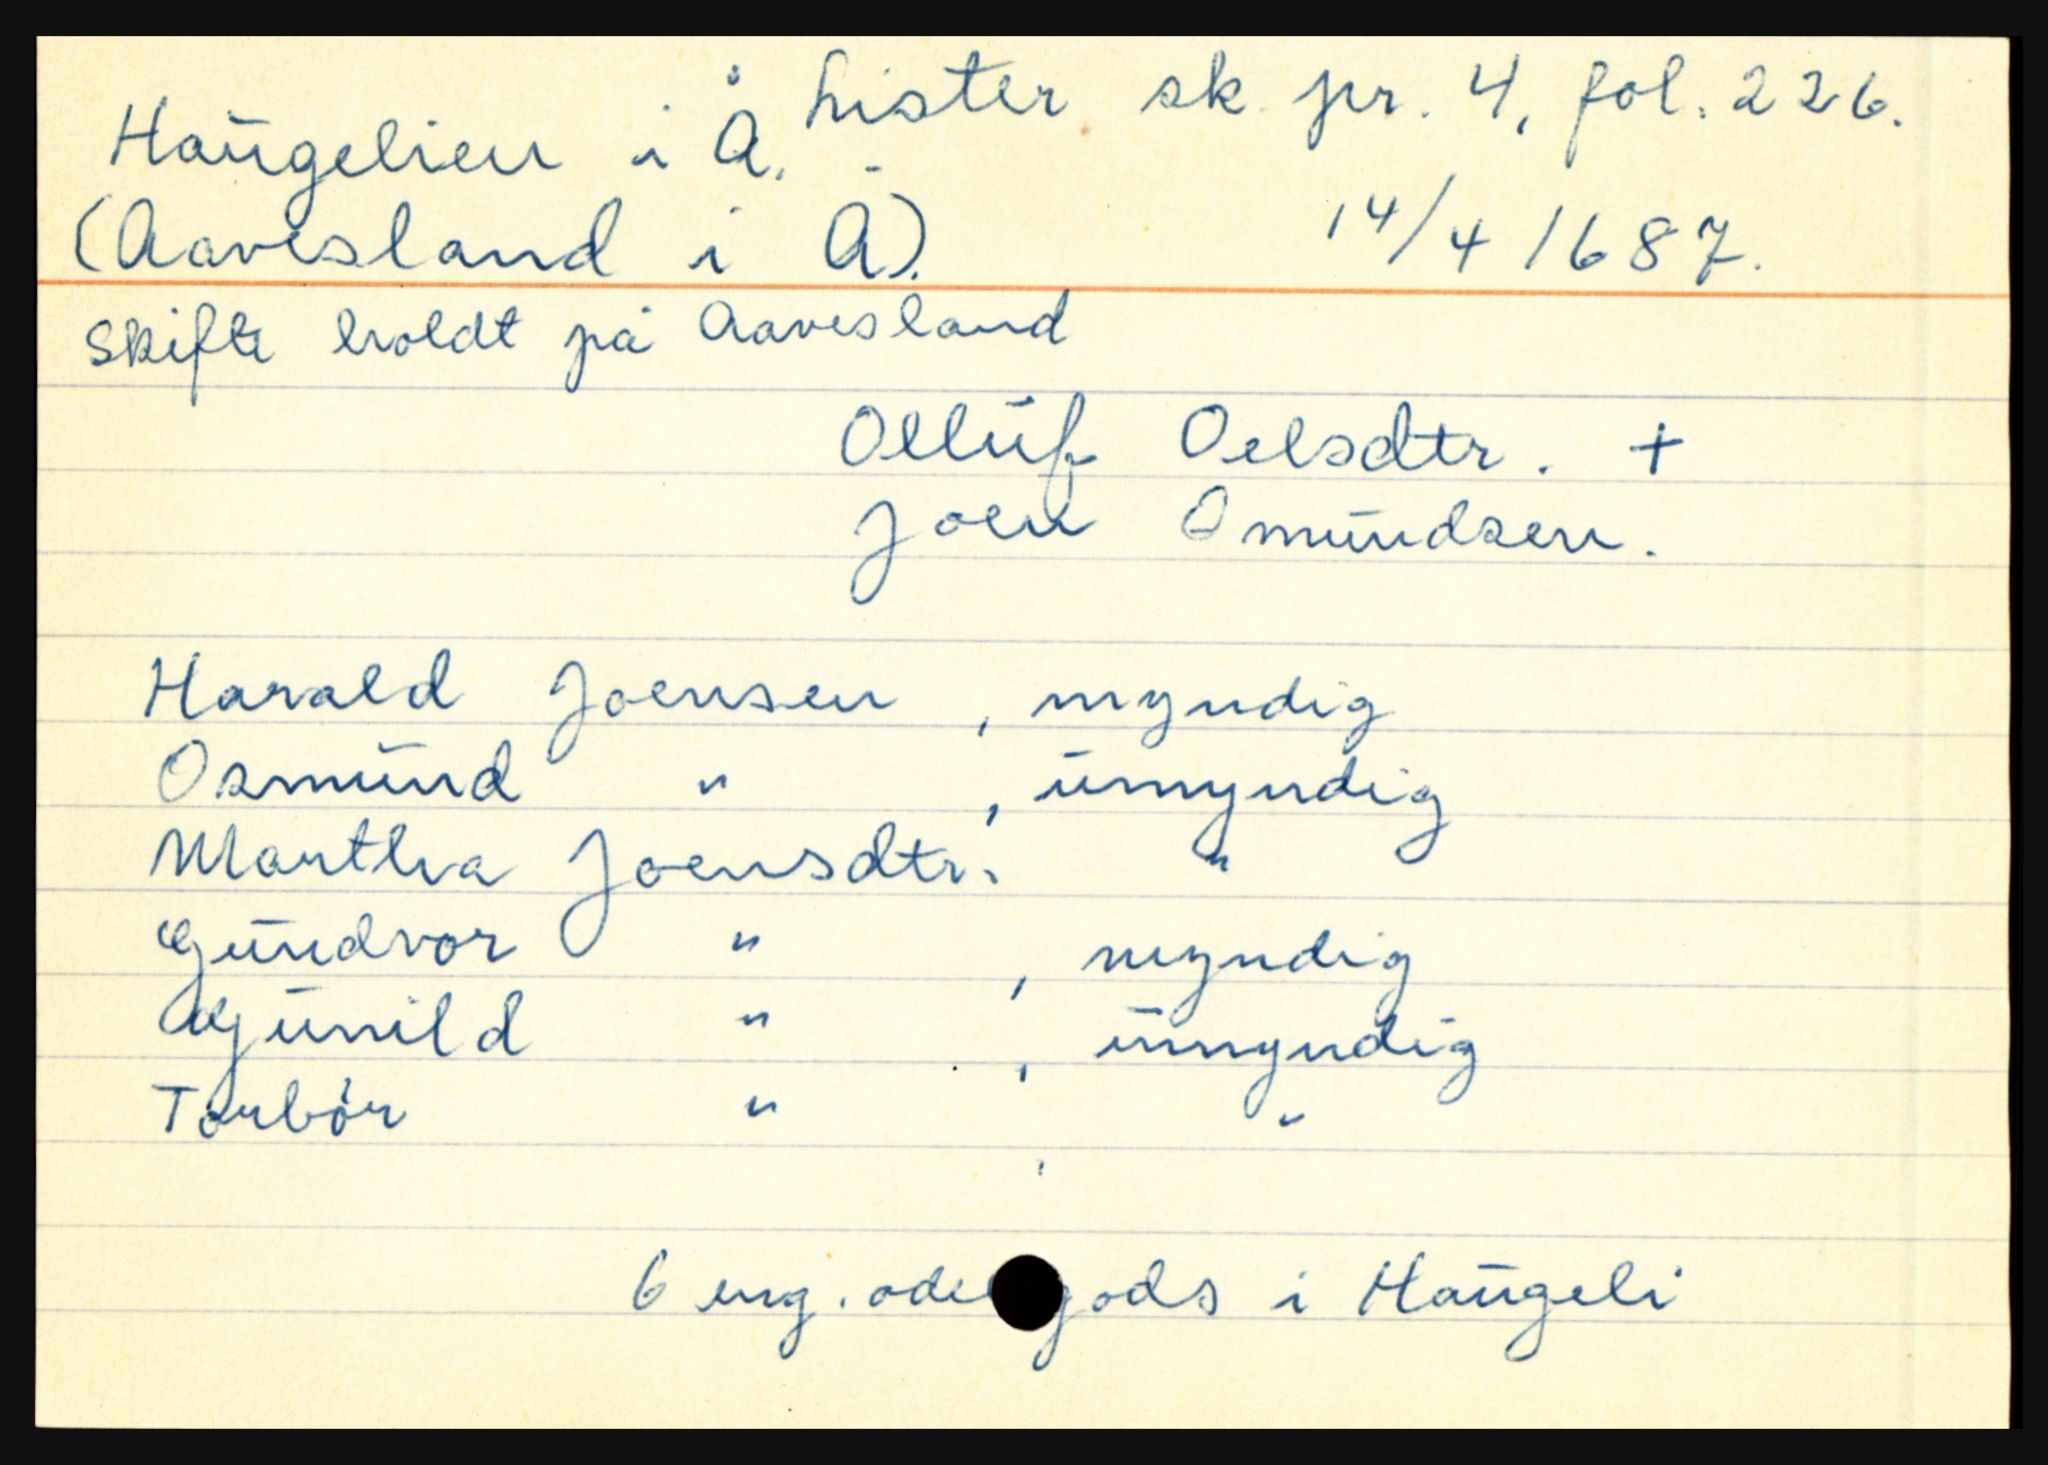 Haugelien i Å. Lister sk. pr. 4, fol. 226.
(Aavesland i Å). 14/4 1687.
Skifte holdt på Aavesland
Olluf Oelsdtr. +
Joen Omundsen.
Harald Joensen, myndig
Osmund ", umyndig
Martha Joensdtr. "
Gundvor ", myndig
Gunild ", umyndig
Torbör " "
6 eng. odelgods i Haugeli